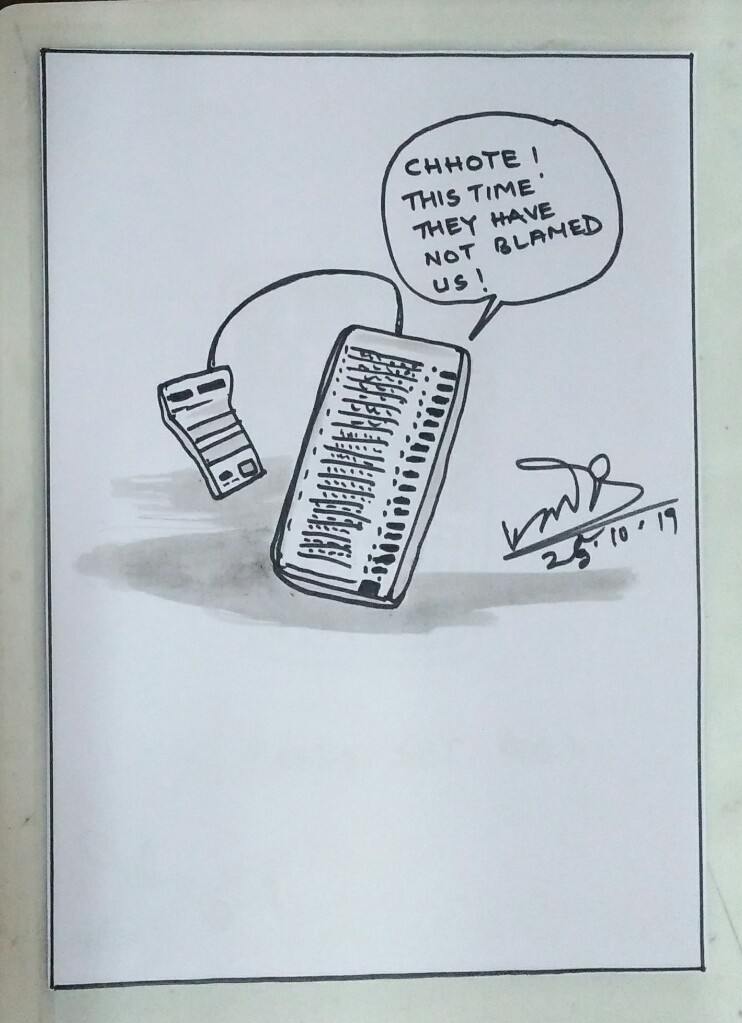 CHHOTE!
THIS TIME
THEY HAVE
NOT BLAMED
US!
25.10.19